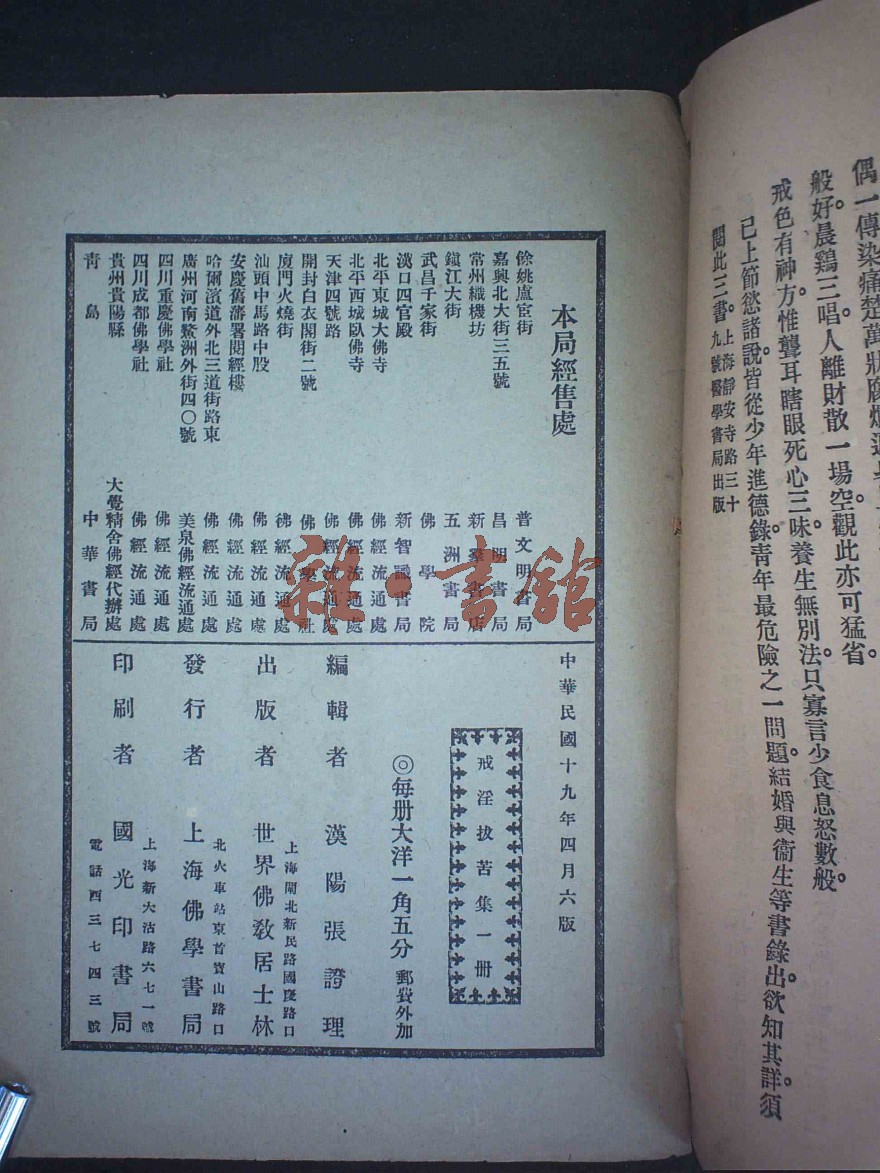 偶一傳染痛楚萬狀腐爛
般好。晨鷄三唱。人離財散一場空。觀此亦可猛省。
戒色有神方。惟聾耳瞎眼死心三味。養生無別法。只寡言少食息怒數般。
已上節慾諸說。皆從少年進德錄。青年最危險之一問題。結婚與衞生等書錄出。欲知其詳。須
閱此三書。上海靜安寺路三十九號醫學書局出版
本局經售處
餘姚盧宦街 普文明書局
嘉興北大街三五號 昌明書局
常州織機坊 新羣書店
鎭江大街 五洲書局
武昌千家街 佛學院
漢口四官殿 新智識書局
北平東城大佛寺 佛經流通處
北平西城臥佛寺 佛經流通處
天津四號路 佛經流通處
開封白衣閣街二號 佛學社
廈門火燒街 佛經流通處
汕頭中馬路中股 佛經流通處
安慶舊藩署閱經樓 佛經流通處
哈爾濱道外北三道街路東 佛經流通處
廣州河南鰲洲外街四〇號 美泉佛經流通處
四川重慶佛學社 佛經流通處
四川成都佛學社 佛經流通處
貴州貴陽縣 大覺精舍佛經代辦處
靑島 中華書局
中華民國十九年四月六版
戒淫拔苦集一册
◎每册大洋一角五分 郵費外加
編輯者 漢陽張證理
上海閘北新民路國慶路口
出版者 世界佛敎居士林
北火車站東首寶山路口
發行者 上海佛學書局
上海新大沽路六七一號
印刷者 國光印書局
電話西三七四三號
雜·書館